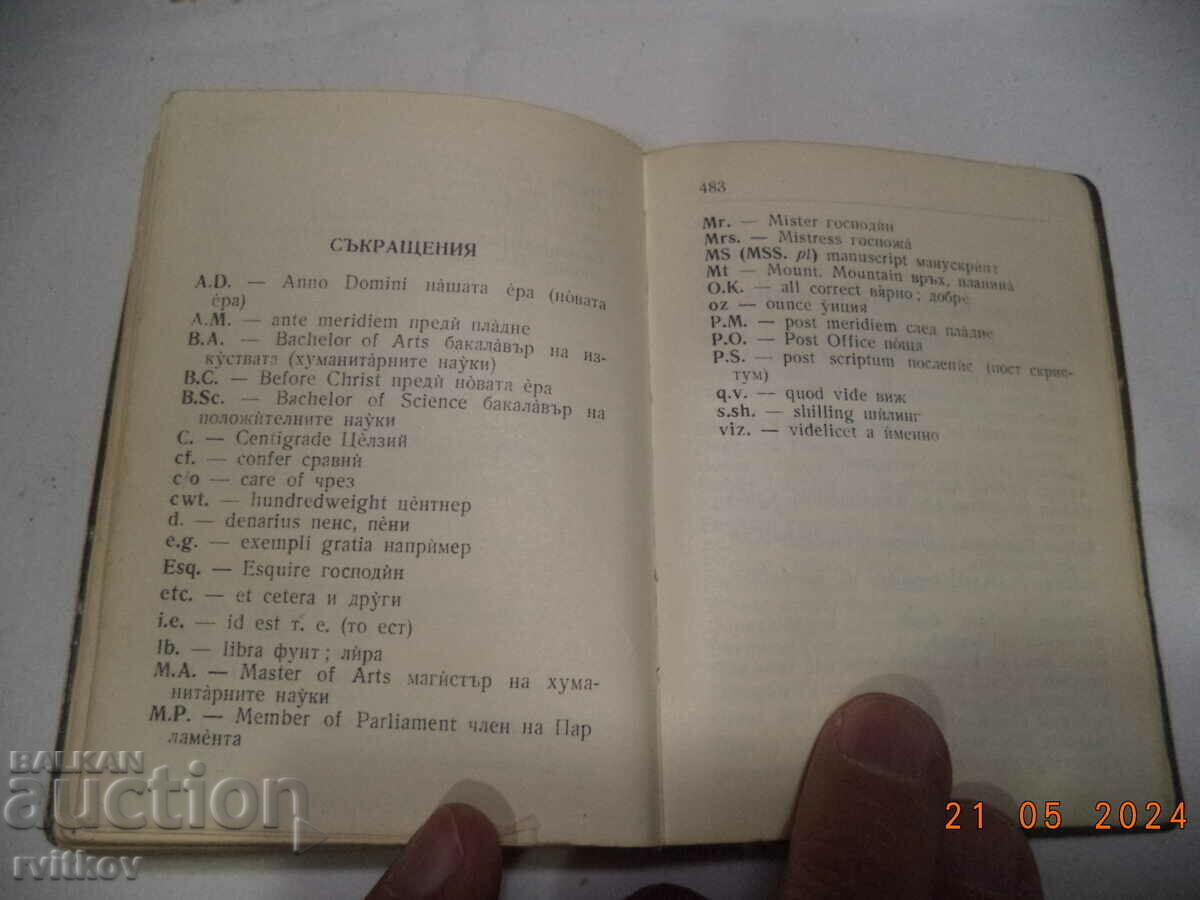 СЪКРАЩЕНИЯ
A.D. — Anno Domini на̀шата ѐра (но̀вата
ѐра)
A.M. — ante meridiem предѝ пла̀дне
B.A. — Bachelor of Arts бакала̀вър на из-
ку̀ствата (хуманита̀рните нау̀ки)
B.C. — Before Christ предѝ но̀вата ѐра
B.Sc. — Bachelor of Science бакала̀вър на
положѝтелните нау̀ки
C. — Centigrade Цѐлзий
cf. — confer сравнѝ
c/o — care of чрез
cwt. — hundredweight цѐнтнер
d. — denarius пенс, пѐни
e.g. — exempli gratia напрѝмер
Esq. — Esquire господѝн
etc. — et cetera и дру̀ги
i.e. — id est т. е. (то ест)
lb. — libra фунт; лѝра
M.A. — Master of Arts магѝстър на хума-
нита̀рните нау̀ки
M.P. — Member of Parliament член на Пар
ламѐнта
483
Mr. — Mister господѝн
Mrs. — Mistress госпожа̀
MS (MSS. pl) manuscript манускрѝпт
Mt — Mount. Mountain връх, планина̀
O.K. — all correct вя̀рно; добрѐ
oz — ounce у̀нция
P.M. — post meridiem след пла̀дне
P.O. — Post Office по̀ща
P.S. — post scriptum послепѝс (пост скрип-
тум)
q.v. — quod vide виж
s.sh. — shilling шѝлинг
viz. — videlicet а ѝменно
BALKAN
auction
rvitkov
21 05 2024